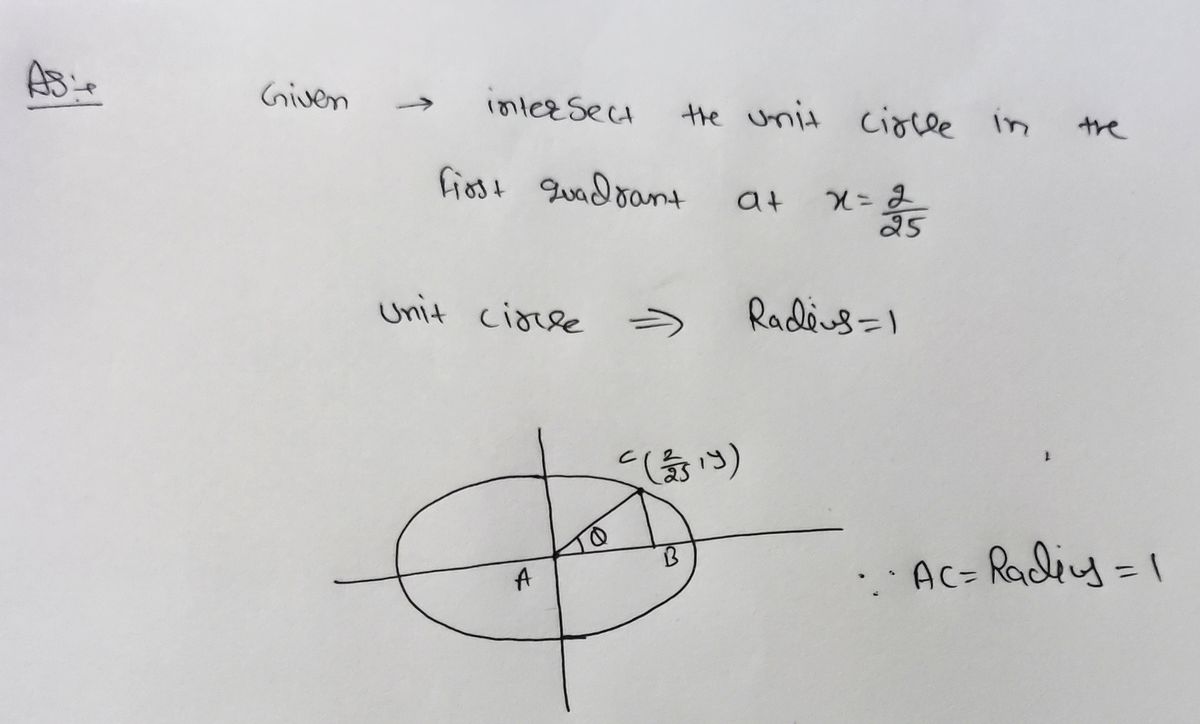 AS:→
Given → intersect the unit circle in the
first quadrant at x = 2/25
unit circle ⇒ Radius = 1
C (2/25, y)
θ
A
B
∵ AC = Radius = 1